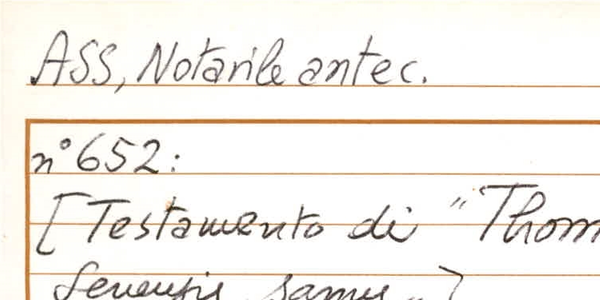 ASS, Notarile antec.
n° 652:
[Testamento di "Thom
Senensis